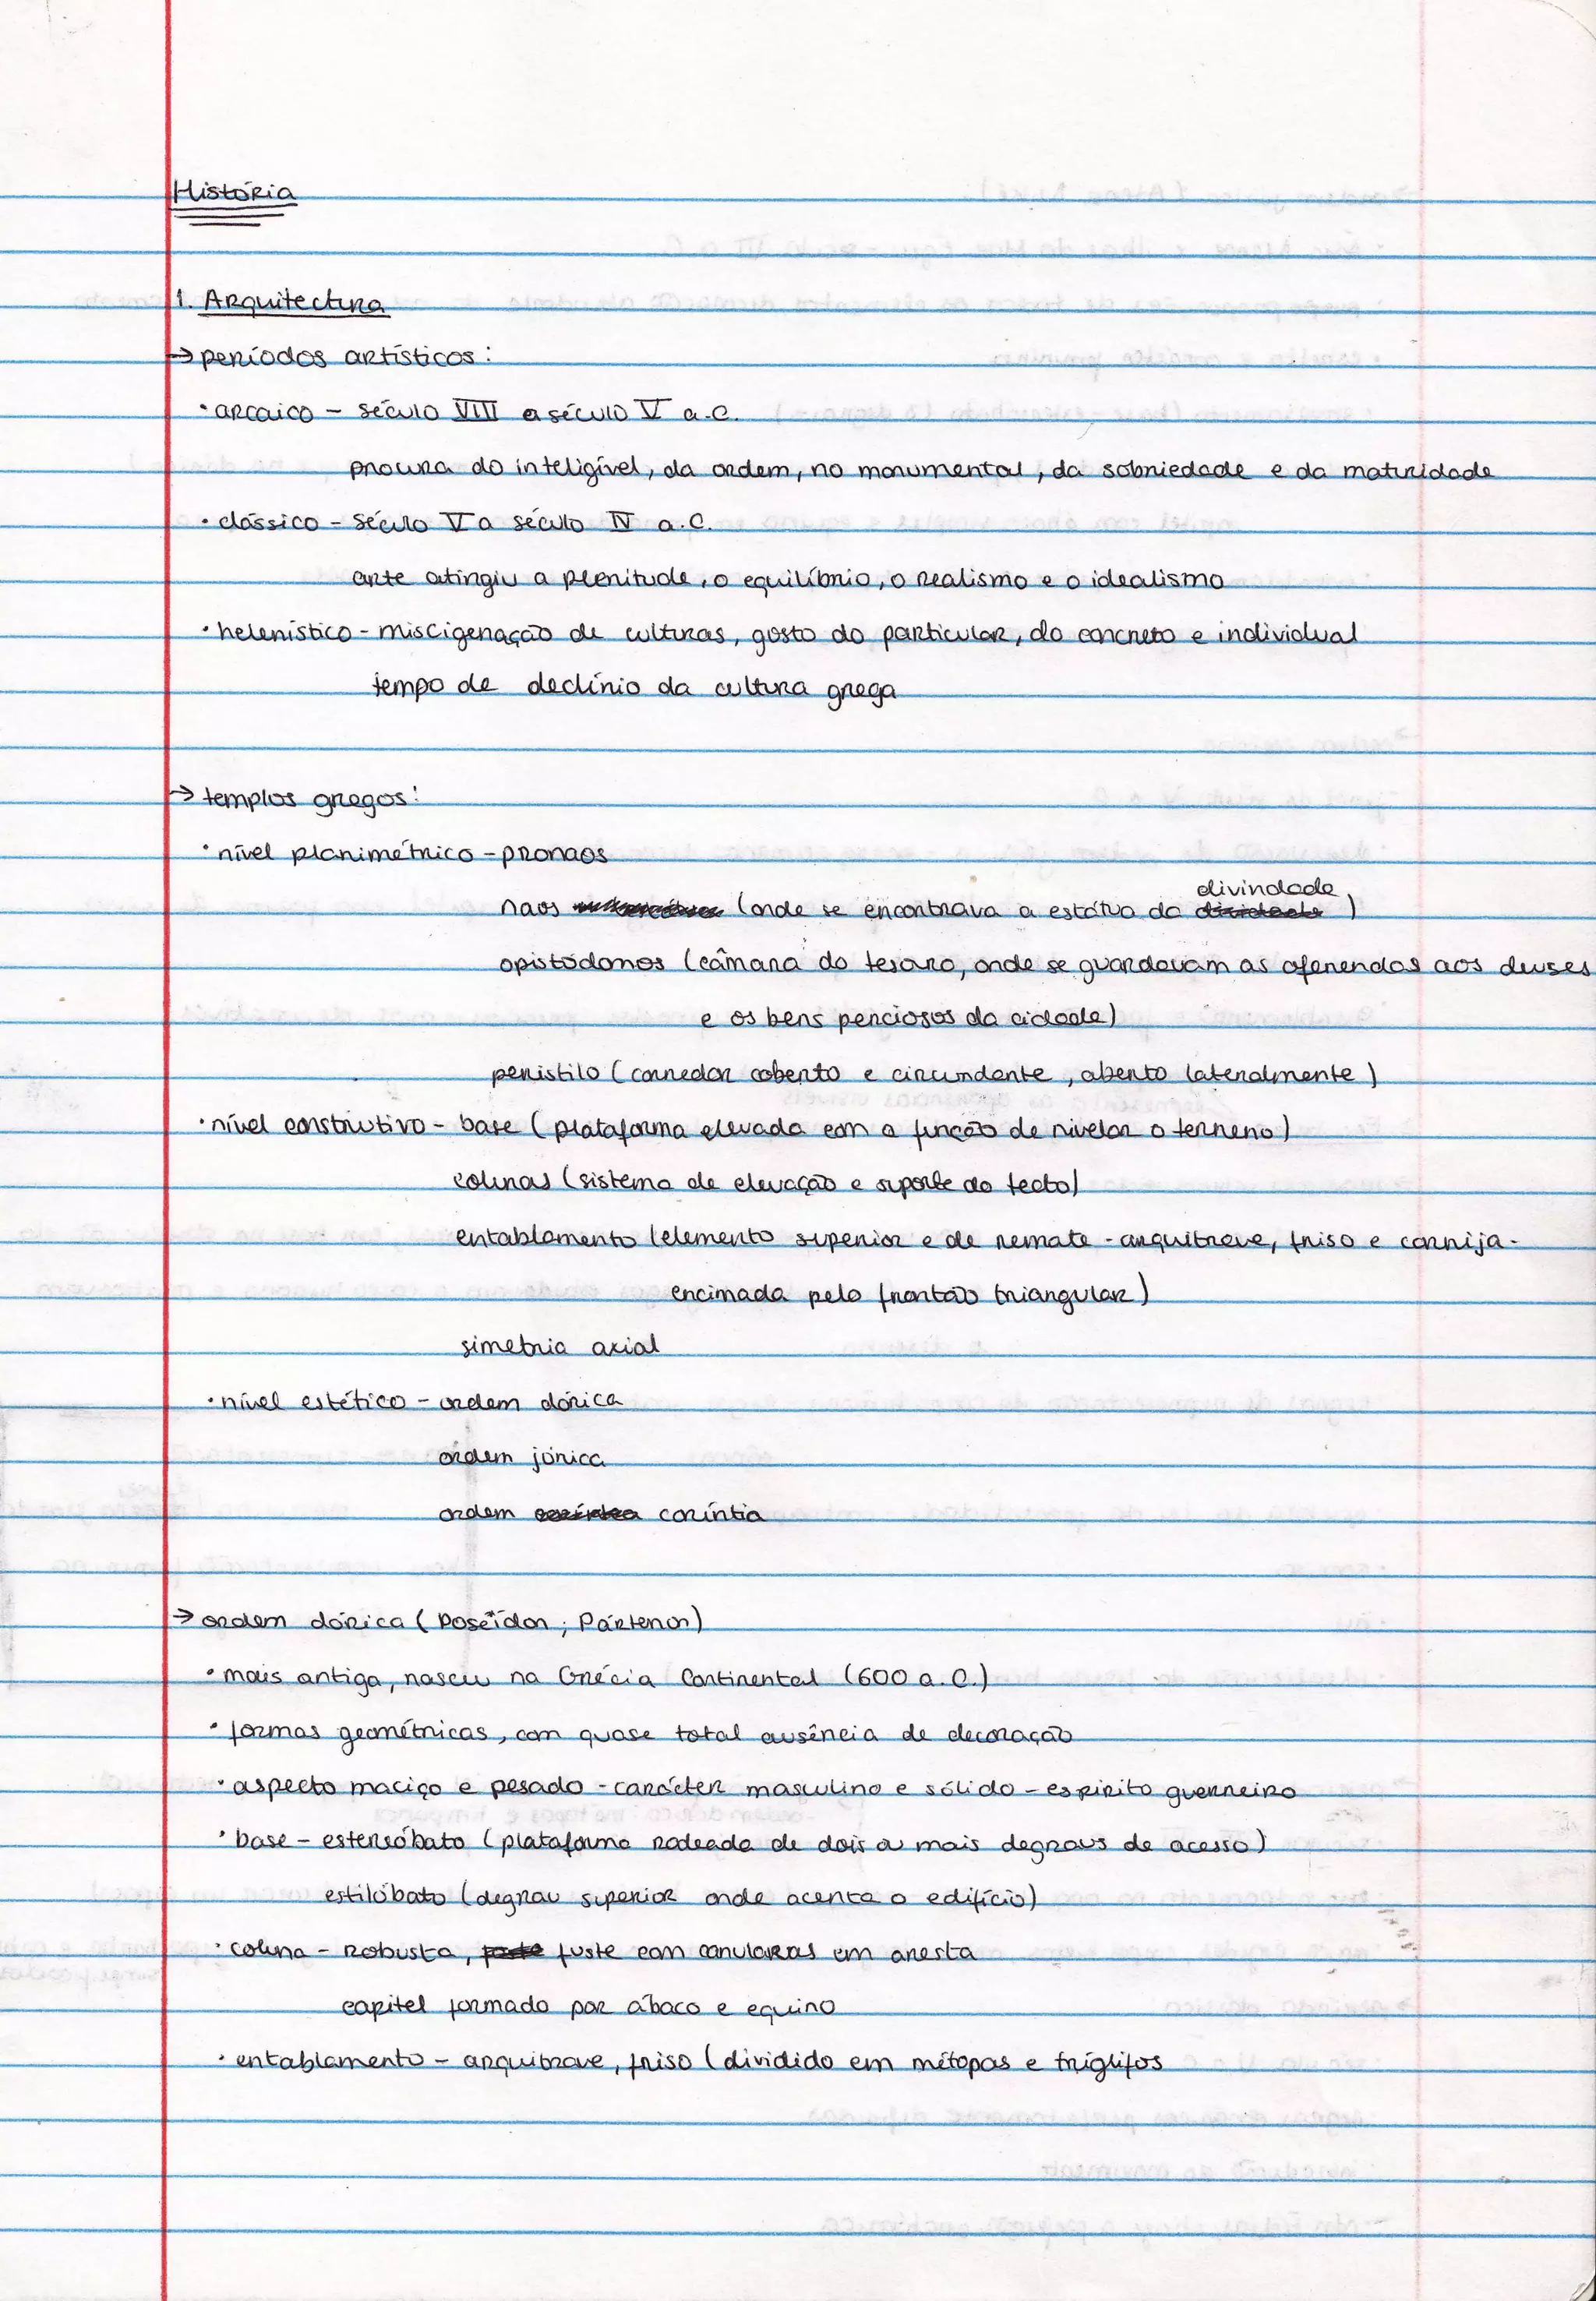 História
1. Arquitectura
→ períodos artísticos:
· arcaico – século VIII a século V a.C.
procura do inteligível, da ordem, no monumental, da sobriedade e da maturidade
· clássico – século V a século IV a.C.
arte atingiu a plenitude, o equilíbrio, o realismo e o idealismo
· helenístico – miscigenação de culturas, gosto do particular, do concreto e individual
tempo de declínio da cultura grega
→ templos gregos:
· nível planimétrico – pronaos
naos (onde se encontrava a estátua da divindade)
opistódomos (câmara do tesouro, onde se guardavam as oferendas aos deuses
e os bens perciosos da cidade)
peristilo (corredor coberto e circundante, aberto lateralmente)
· nível construtivo – base (plataforma elevada com a função de nivelar o terreno)
colunas (sistema de elevação e suporte do tecto)
entablamento (elemento superior e de remate – arquitrave, friso e cornija –
encimada pelo frontão triangular)
simetria axial
· nível estético – ordem dórica
ordem jónica
ordem coríntia
→ ordem dórica (Poseídon; Pártenon)
· mais antiga, nasceu na Grécia Continental (600 a.C.)
· formas geométricas, com quase total ausência de decoração
· aspecto maciço e pesado – carácter masculino e sólido – espirito guerreiro
· base – estereóbato (plataforma rodeada de dois ou mais degraus de acesso)
estilóbato (degrau superior onde acenta o edifício)
· coluna – robusta, fuste com canuluras em aresta
capitel formado por ábaco e equino
· entablamento – arquitrave, friso (dividido em métopas e tríglifos